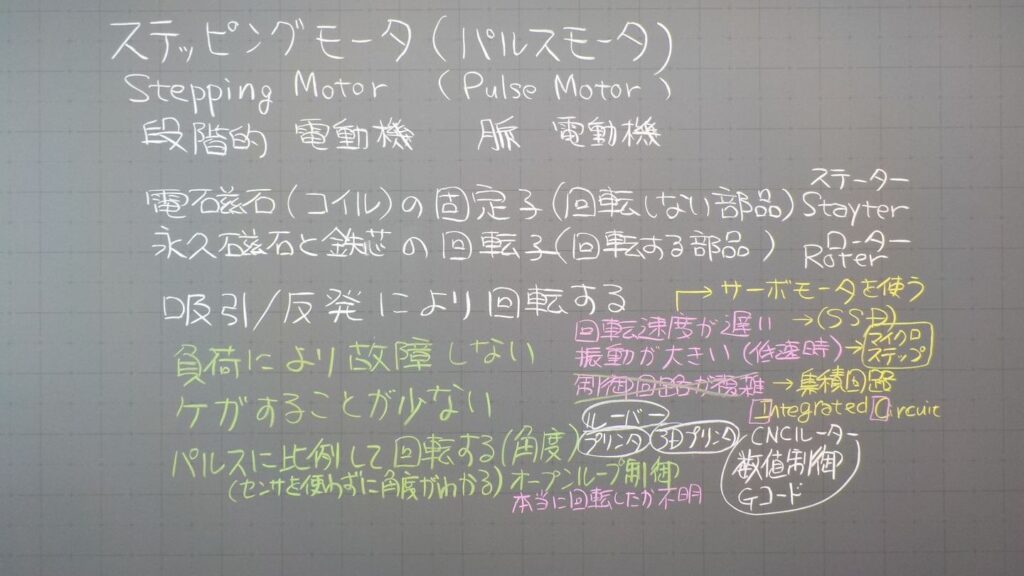 ステッピングモータ(パルスモータ)
Stepping Motor (Pulse Motor)
段階的 電動機 脈 電動機
ステーター
電石磁石(コイル)の固定子(回転しない部品)Stayter
ローター
永久磁石と鉄芯の回転子(回転する部品)Roter
吸引/反発により回転する
→サーボモータを使う
回転速度が遅い →(SSD)
振動が大きい(低速時)→マイクロステップ
制御回路が複雑 →集積回路
Integrated Circuic
負荷により故障しない
ケガすることが少ない
ルーバー
プリンタ 3Dプリンタ CNCルーター
数値制御
Gコード
パルスに比例して回転する(角度)
(センサを使わずに角度がわかる)オープンループ制御
本当に回転したか不明